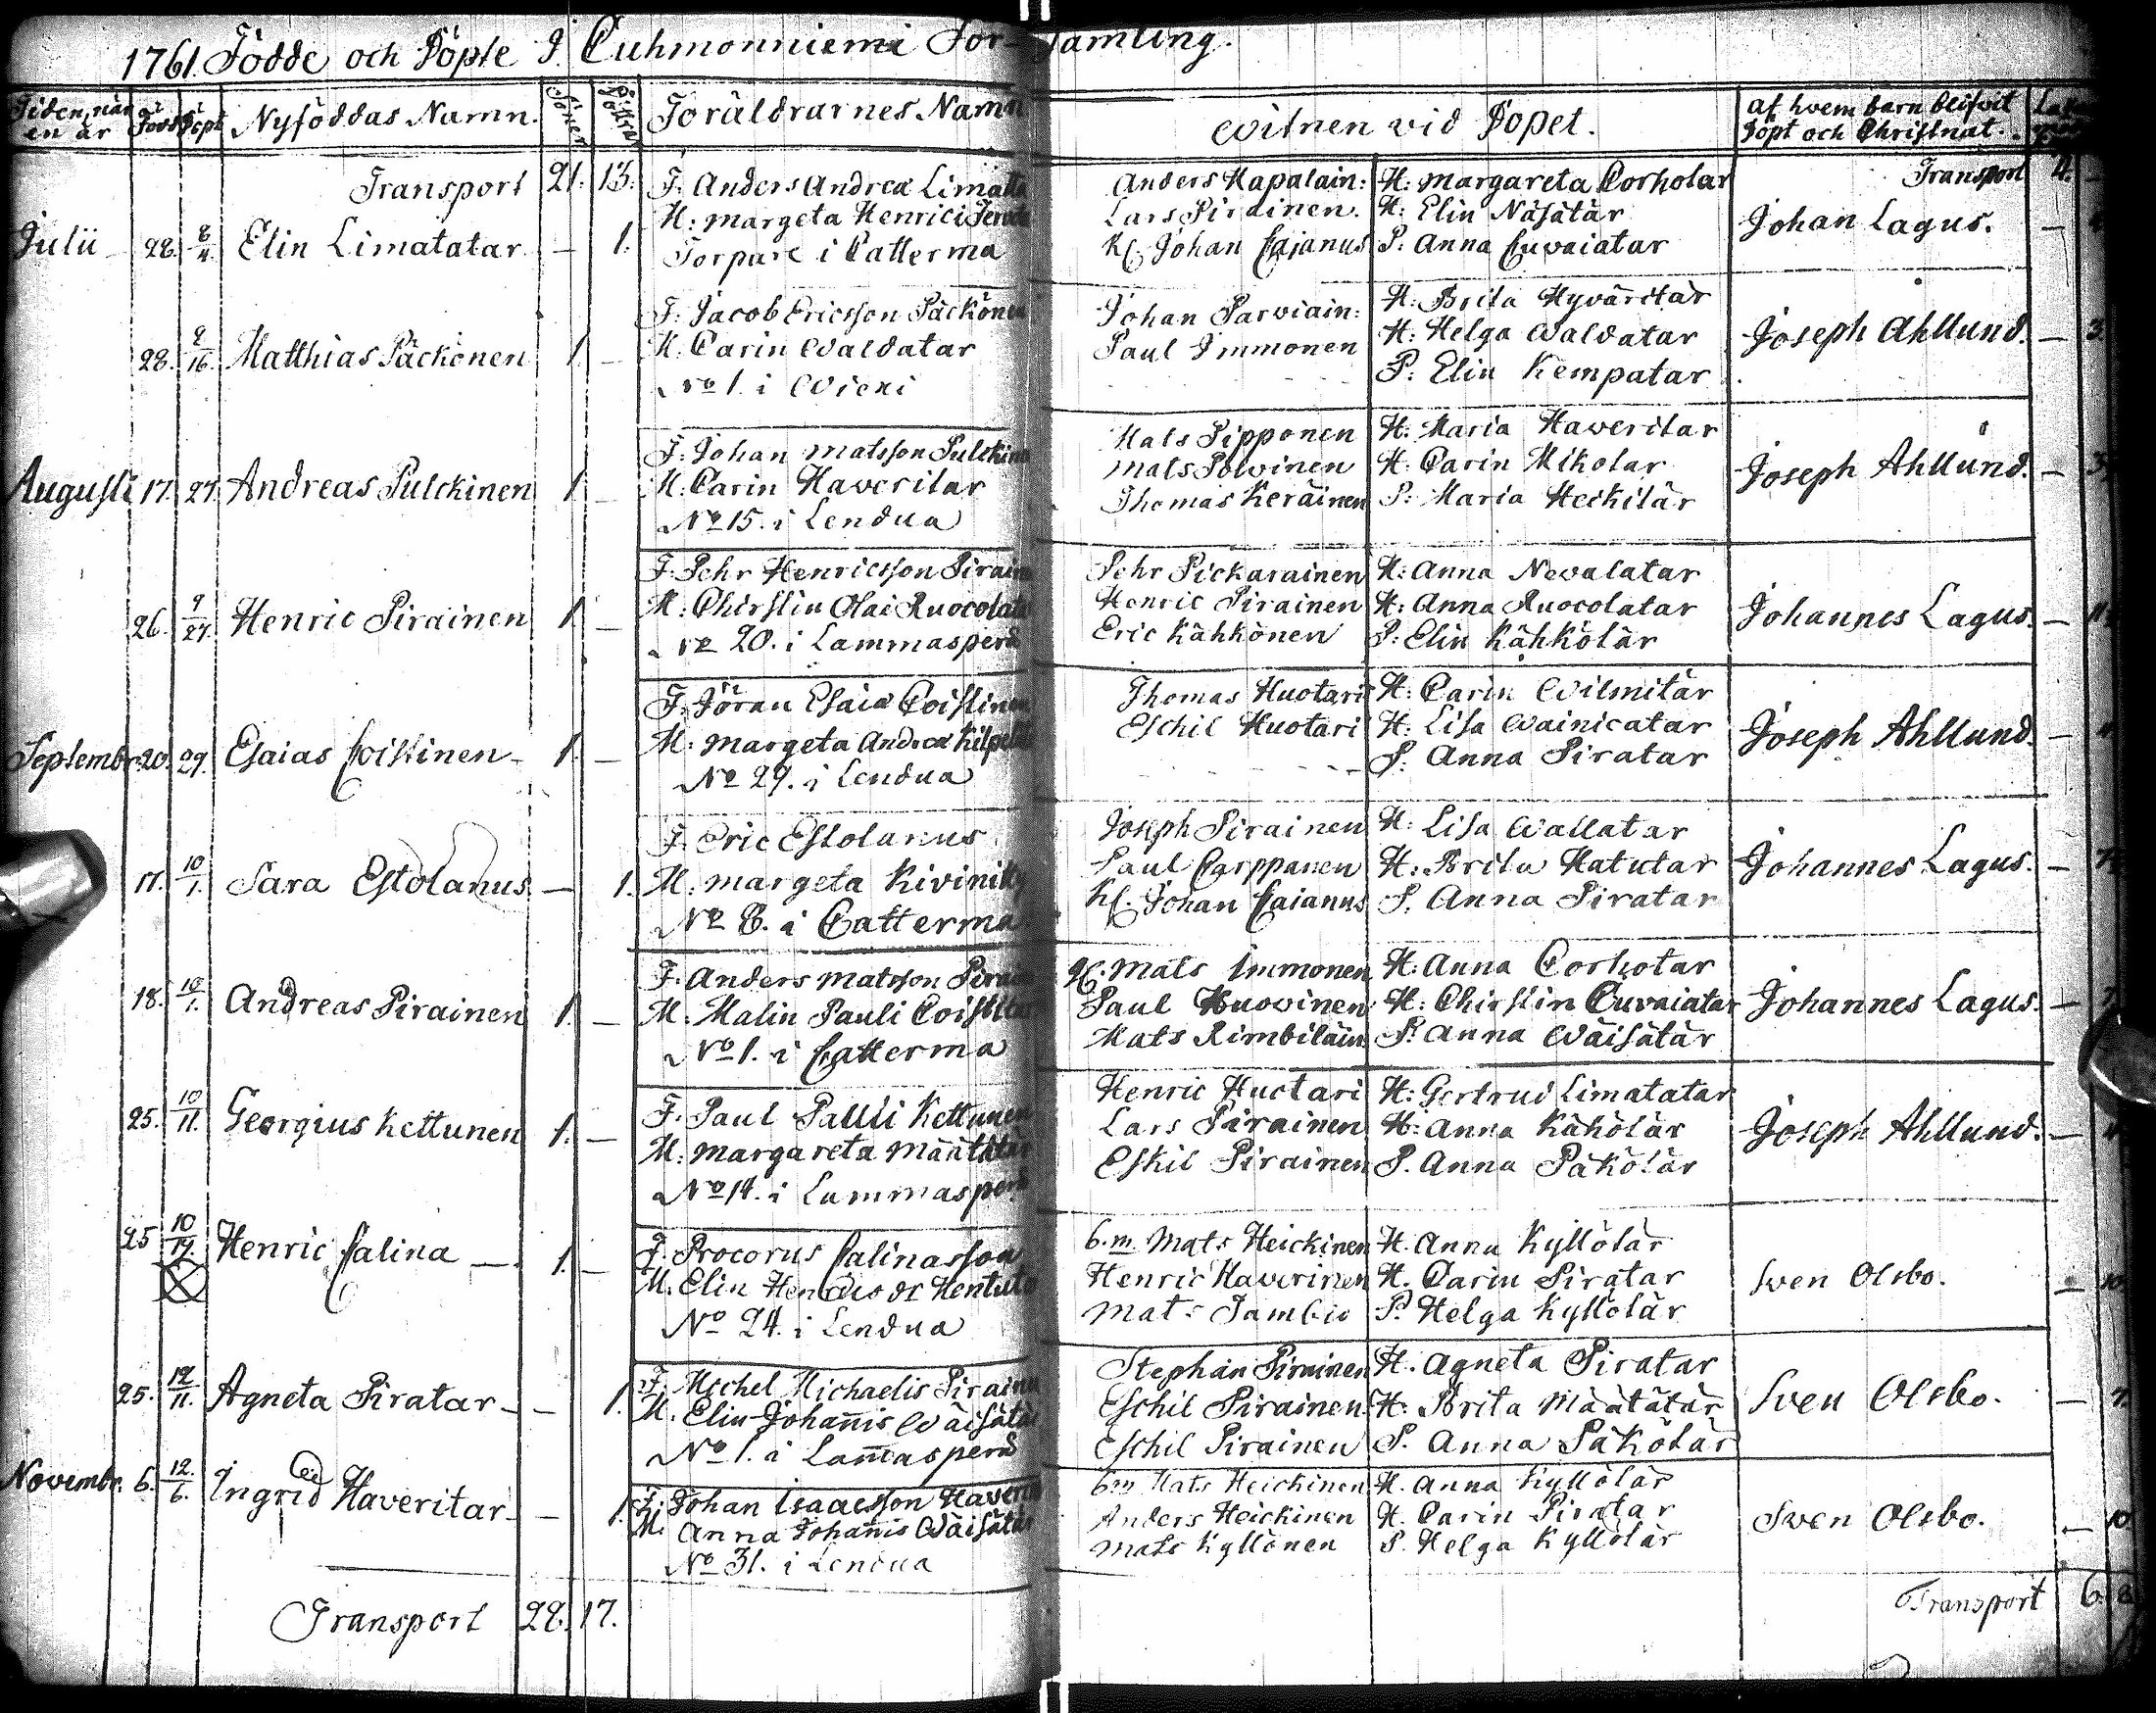 1761. Födde och Döpte I. Cuhmonniemi För-samling.
Tiden, när en är Född Döpt Nyföddas Namn. Söner Döttrar Föräldrarnes Namn Witnen vid Dopet. af hvem barn blifvit Döpt och Christnat.
Transport 21. 13. Transport 4.
F: Anders Andreæ Limata Anders Hapalain: H: Margareta Corholar
H: Margeta Henrici Lars Pirainen. H: Elin Näsätär
Julii 28. 8/4. Elin Limatatar — 1. Torpare i Catterma Kl. Johan Cajanus P: Anna Cuvaiatar Johan Lagus. —
F: Jacob Ericsson Päckönen Johan Parviain: H: Brita Hyväritär
28. 9/16. Matthias Päckönen 1. — M. Carin Waldatar Paul Immonen H: Helga Waldatar Joseph Ahllund. — 3.
No 1. i Wieki P: Elin Kempatar
F: Johan Matsson Pulckinen Mats Pipponen H: Maria Haveritar
Augusti 17. 27. Andreas Pulckinen 1. — M: Carin Haveritar Mats Polvinen H: Carin Mikolar Joseph Ahllund. — 3.
No 15. i Lendua Thomas Keräinen P: Maria Heikilär
F: Pehr Henricsson Pirain Pehr Pickarainen H: Anna Nevalatar
26. 9/27. Henric Pirainen 1. — M: Chirstin Olai Ruocolat Henric Pirainen H: Anna Ruocolatar Johannes Lagus. — 11.
No 20. i Lammasperä Eric Kähkönen P: Elin Kähkölär
F: Jöran Esaiæ Coistinen Thomas Huotari H: Carin Wilmitär
Septembr. 20. 29. Esaias Coistinen — 1. — M: Margeta Andreæ Eschil Huotari H: Lisa Wainicatar Joseph Ahllund. —
No 29. i Lendua P. Anna Piratar
F. Eric Estolanus Joseph Pirainen H: Lisa Wallatar
17. 10/1. Sara Estolanus. — 1. M: Margeta Paul Carppanen H: Brita Hatutar Johannes Lagus. — 7.
No 8. i Catterma Kl. Johan Caianus P. Anna Piratar
F: Anders Matsson Mats Immonen H: Anna Corhotar
18. 10/1. Andreas Pirainen 1. — M: Malin Pauli Paul Huovinen H: Chirstin Cuvaiatar Johannes Lagus. — 7.
No 1. i Catterma Mats Rimbiläin P: Anna Wäisätär
F: Paul Pauli Kettunen Henric Huotari H: Gertrud Limatatar
25. 10/11. Georgius Kettunen 1. — M: Margareta Lars Pirainen H: Anna Kähölär Joseph Ahllund. —
No 14. i Lammasperä Eskil Pirainen P. Anna Päkölär
F. Procorus Calinasson 6.m. Mats Heickinen H. Anna Kyllölär
25 Henric Calina — 1. — M. Elin Henrics dr Henric Haverinen H. Carin Piratar Sven Olsbo. — 10
No 24. i Lendua Mats P. Helga Kyllölär
F. Michel Michaelis Piraine Stephan Pirainen H. Agneta Piratar
25. 12/11. Agneta Piratar — — 1. M. Elin Johannis Wäisätär Eschil Pirainen H: Brita Määtätär Sven Olsbo. — 7
No 1. i Lammasperä Eschil Pirainen P. Anna Päkölär
Novembr. 6. 12/6. Ingrid Haveritar — — 1. F: Johan Isaacsson Haveri 6m Mats Heickinen H. Anna Kyllölär
M. Anna Johannis Wäisätär Anders Heickinen H. Carin Piratar Sven Olsbo. — 10
No 31. i Lendua Mats Kyllönen P. Helga Kyllölär
Transport 28. 17. Transport 6.